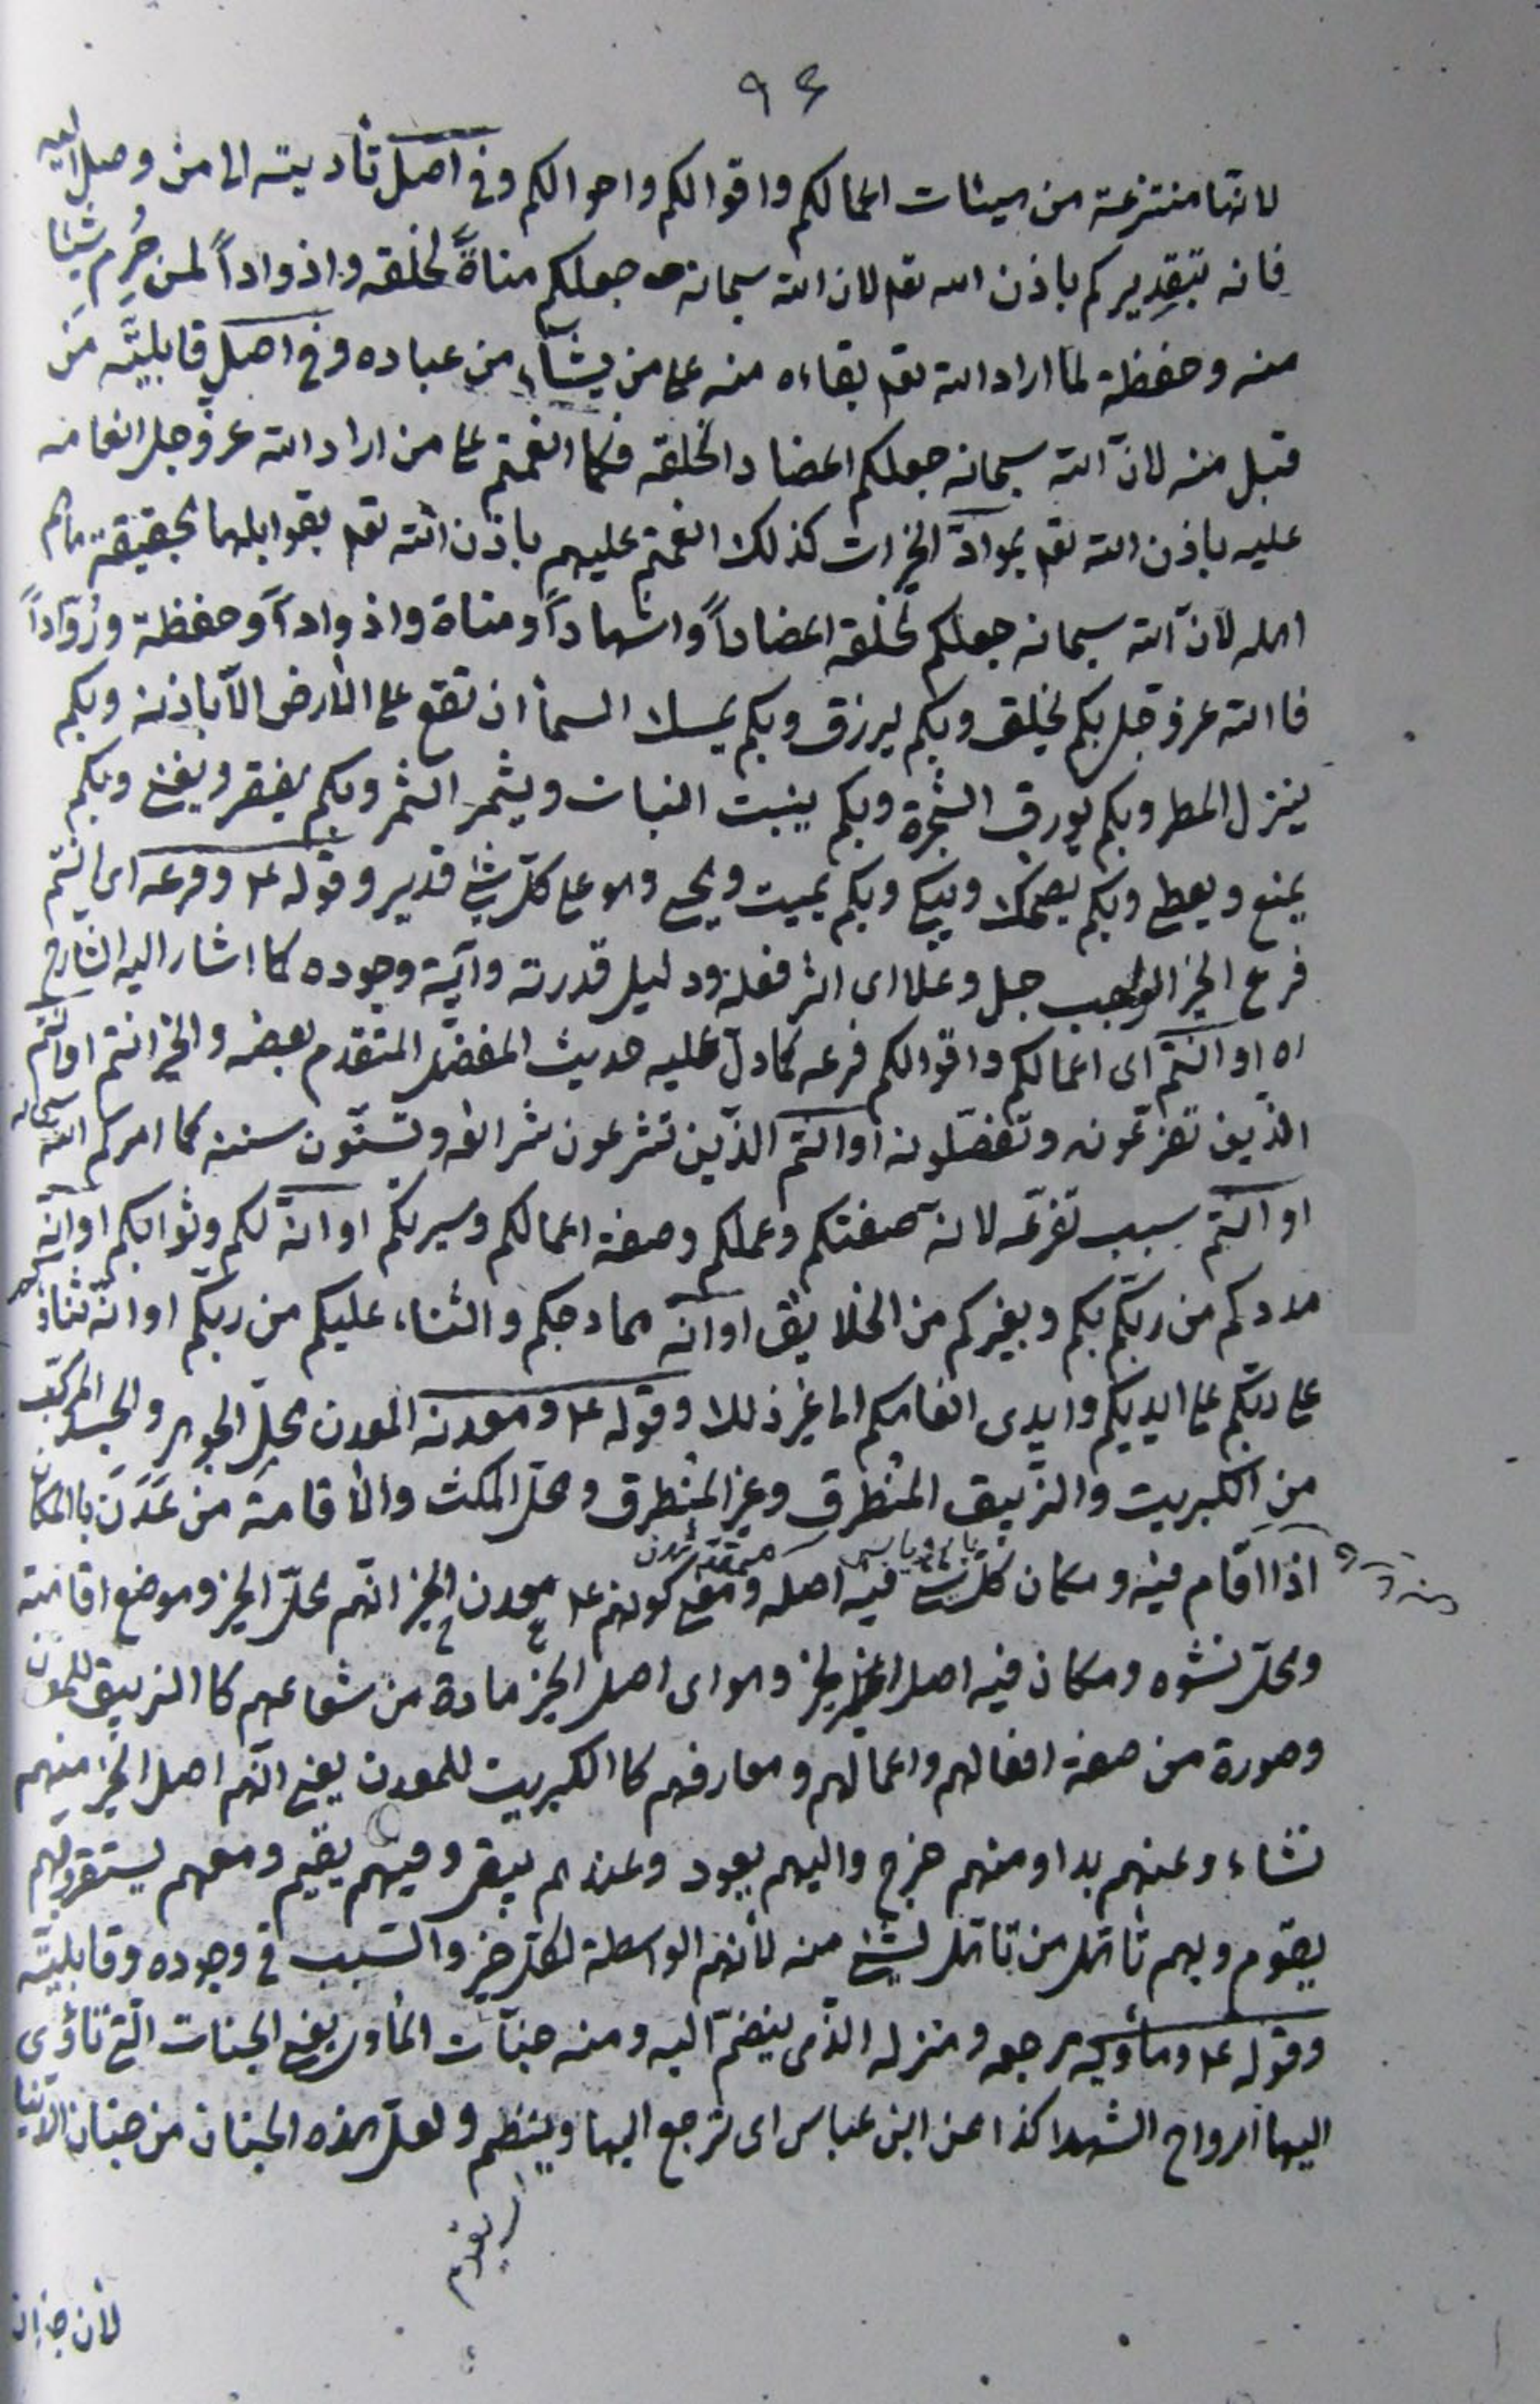 ٩٤
لانها منتزعة من هيئات اعمالكم واقوالكم واحوالكم وفى اصل تأديته الى من وصل اليه
فانه بتقديركم باذن الله تعم لان الله سبحانه جعلكم مناةً لخلقه واذواداً لمن حُرِم شيئا
منه وحفظة لما اراد الله تعم بقاءه منه على من يشاء من عباده وفى اصل قابليّة مَن
قبل منه لانّ الله سبحانه جعلكم اعضادا لخلقه فكما انعمتم على من اراد الله عز وجل انعامه
عليه باذن الله تعم بموادّ الخيرات كذلك انعمتم عليهم باذن الله تعم بقوابلها بحقيقة ما هم
اهله لانّ الله سبحانه جعلكم لخلقه اعضاداً واشهاداً ومناة واذواداً وحفظة وروّاداً
فالله عز وجل بكم يخلق وبكم يرزق وبكم يمسك السمآ ان تقع على الأرض الّا باذنه وبكم
ينزل المطر وبكم يورق الشجرة وبكم ينبت النبات ويثمر الثمر وبكم يفقر ويغنى وبكم
يمنع ويعطى وبكم يضحك ويبكى وبكم يميت ويحيى وهو على كلّ شئ قدير وقوله ع وفرعه اى انتم
فرع الخير الواجب جل وعلا اى اثر فعله ودليل قدرته وآية وجوده كما اشار اليه الشارح
ره او انتم اى اعمالكم واقوالكم فرعه كما دلّ عليه حديث المفضل المتقدم بعضه والخير انتم او انتم
الذين تفرّعونه وتفصّلونه او انتم الذين تشرعون شرائعه وتسنّون سننه كما امركم الله سبحانه
او انتم سبب تفرّعه لانه صفتكم وعملكم وصفة اعمالكم وسيرتكم او انّه لكم وثوابكم او انّه
مددكم من ربّكم بكم وبغيركم من الخلايق او انّه ممادحكم والثناء عليكم من ربكم او انّه ثناؤكم
على ربّكم على ايديكم وايدى انعامكم الى غير ذلك وقوله ع ومعدنه المعدن محلّ الجوهر والجسد المركّب
من الكبريت والزيبق المنطرق وغير المنطرق ومحلّ المكث والاقامة من عَدَن بالمكان
اذا اقام فيه ومكان كلّ شئ فيه اصله ومعنى كونهم ع معدن الخير انّهم محلّ الخير وموضع اقامته
ومحلّ نشوه ومكان فيه اصل الخير وهو اى اصل الخير مادة من شعاعهم كالزيبق للمعدن
وصورة من صفة افعالهم واعمالهم ومعارفهم كالكبريت للمعدن يعنى انّهم اصل الخير منهم
نشاء وعنهم بدا ومنهم خرج واليهم يعود وعندهم يبقى وفيهم يقيم ومعهم يستقر وبهم
يقوم وبهم تأهل من تأهل لشئ منه لأنهم الواسطة لكل خير والسبب فى وجوده وقابليّته
وقوله ع ومأويه مرجعه ومنزله الذى ينضمّ اليه ومنه جنّات المأوى يعنى الجنات الّتى تأوى
اليها ارواح الشهدا كذا عن ابن عباس اى ترجع اليها وينظم ولعلّ هذه الجنان من جنان الدنيا
لأن جنان